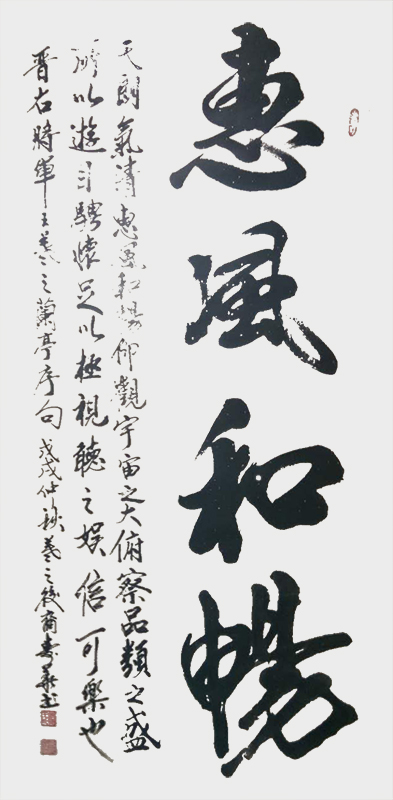 惠風和暢
天朗氣清惠風和暢仰觀宇宙之大俯察品類之盛
所以遊目騁懷足以極視聽之娛信可樂也
晉右將軍王羲之蘭亭序句戊戌仲秋羲之後裔壽華書